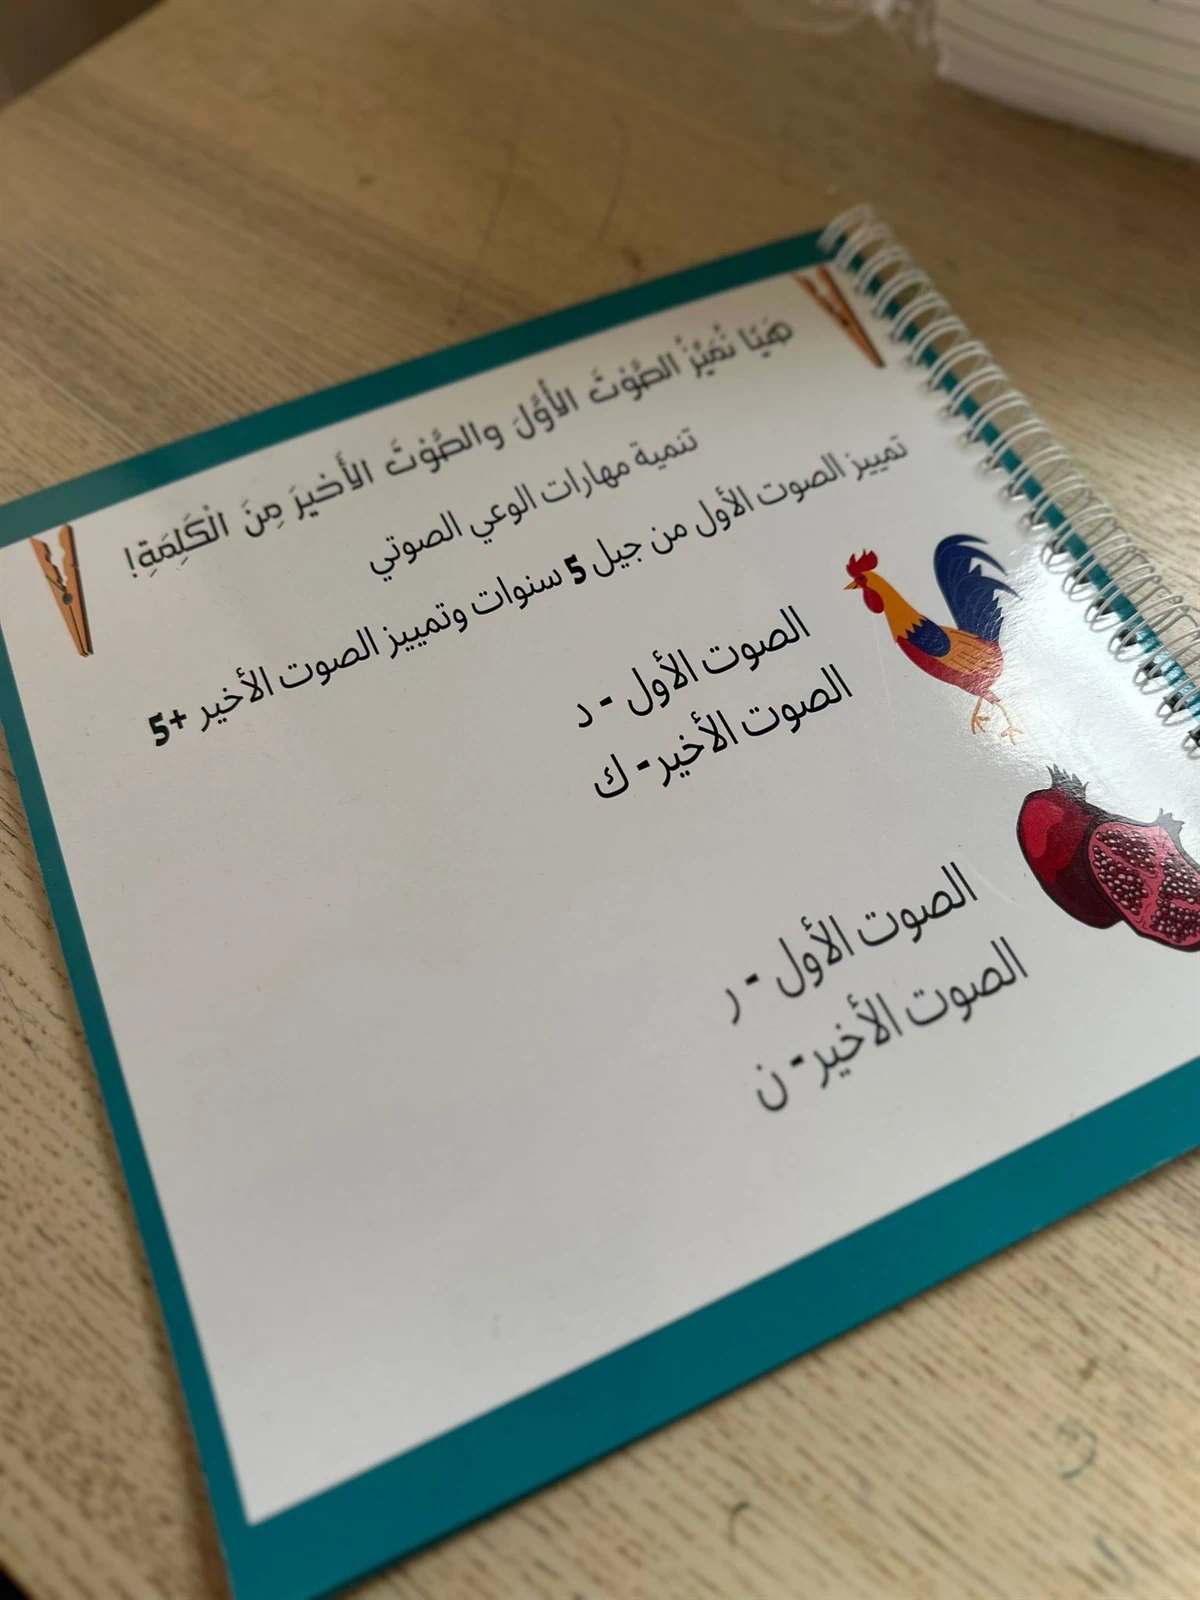 هَيّا نُمَيِّزُ الصَّوْتَ الأَوَّلَ والصَّوْتَ الأَخيرَ مِنَ الْكَلِمَةِ!
تنمية مهارات الوعي الصوتي
تمييز الصوت الأول من جيل 5 سنوات وتمييز الصوت الأخير +5
الصوت الأول - د
الصوت الأخير- ك
الصوت الأول - ر
الصوت الأخير- ن